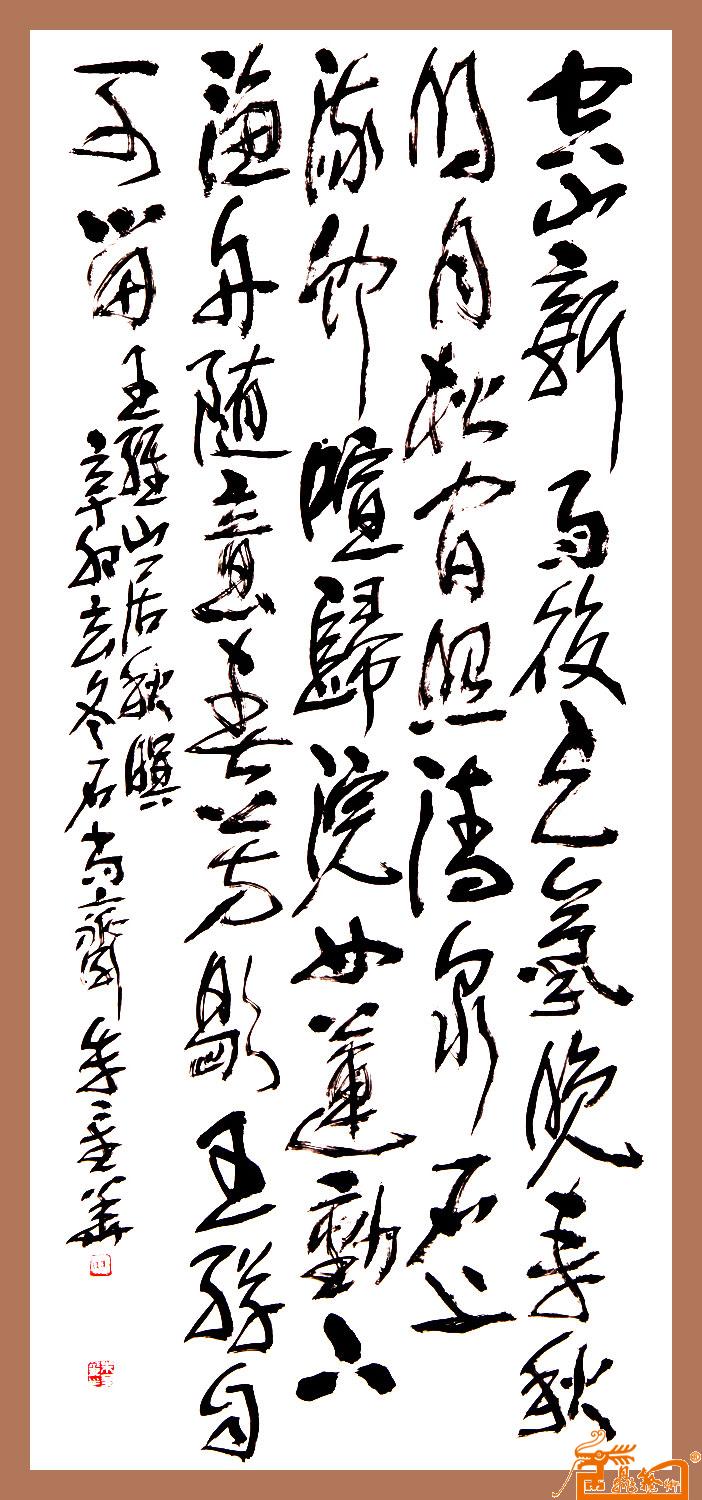 空山新雨後天氣晚來秋
明月松間照清泉石上
流竹喧歸浣女蓮動下
漁舟随意春芳歇王孫自
可留 王維山居秋暝
辛卯玄冬石尚齋朱